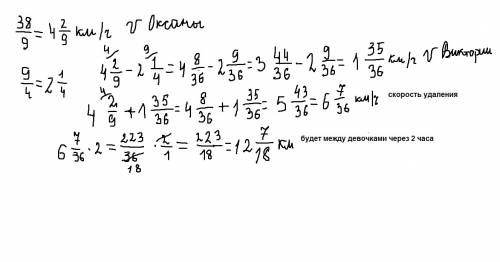 38/9 = 4 2/9 км/г V Оксаны
9/4 = 2 1/4
4 2/9 - 2 1/4 = 4 8/36 - 2 9/36 = 3 44/36 - 2 9/36 = 1 35/36 км/г V Виктории
4 2/9 + 1 35/36 = 4 8/36 + 1 35/36 = 5 43/36 = 6 7/36 км/г скорость удаления
6 7/36 · 2 = 223/36 · 2/1 = 223/18 = 12 7/18 км будет между девочками через 2 часа